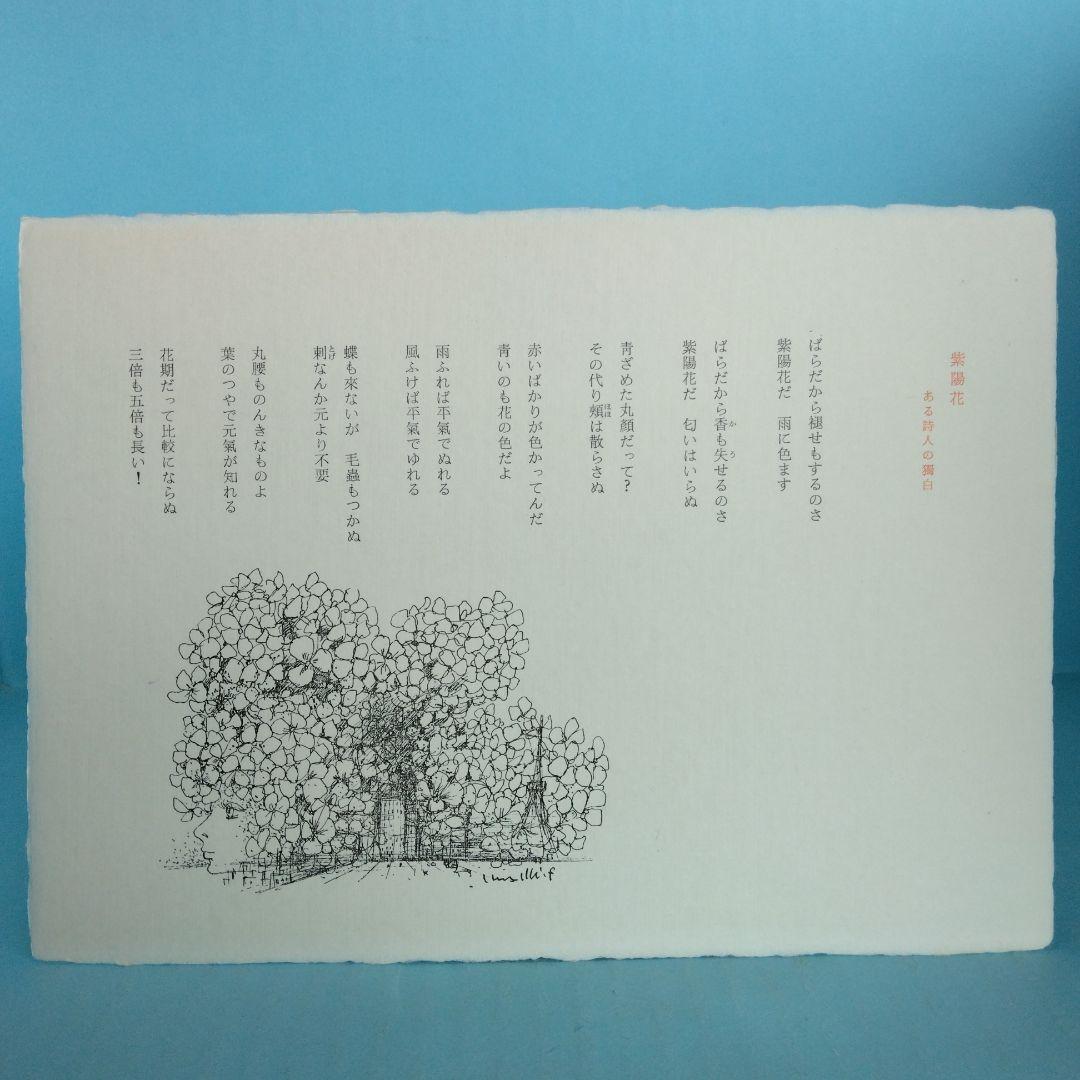 紫陽花
ある詩人の獨白
ばらだから褪せもするのさ
紫陽花だ　雨に色ます
ばらだから香も失せるのさ
紫陽花だ　匂いはいらぬ
靑ざめた丸顏だって?
その代り頰は散らさぬ
赤いばかりが色かってんだ
靑いのも花の色だよ
雨ふれば平氣でぬれる
風ふけば平氣でゆれる
蝶も來ないが　毛蟲もつかぬ
刺なんか元より不要
丸腰ものんきなものよ
葉のつやで元氣が知れる
花期だって比較にならぬ
三倍も五倍も長い!